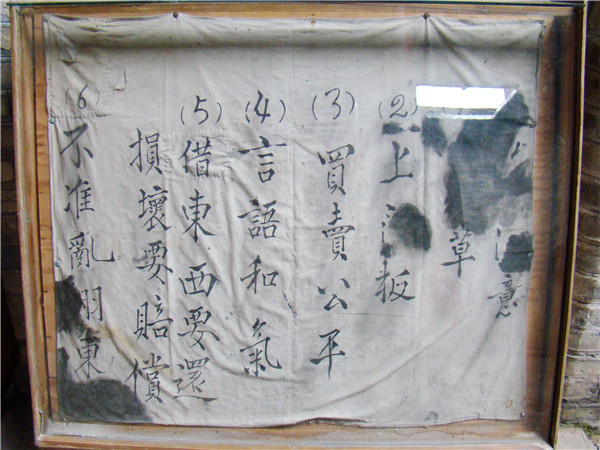 意
草
(2) 上 板
(3) 買賣公平
(4) 言語和氣
(5) 借東西要還
損壞要賠償
(6) 不准亂 東